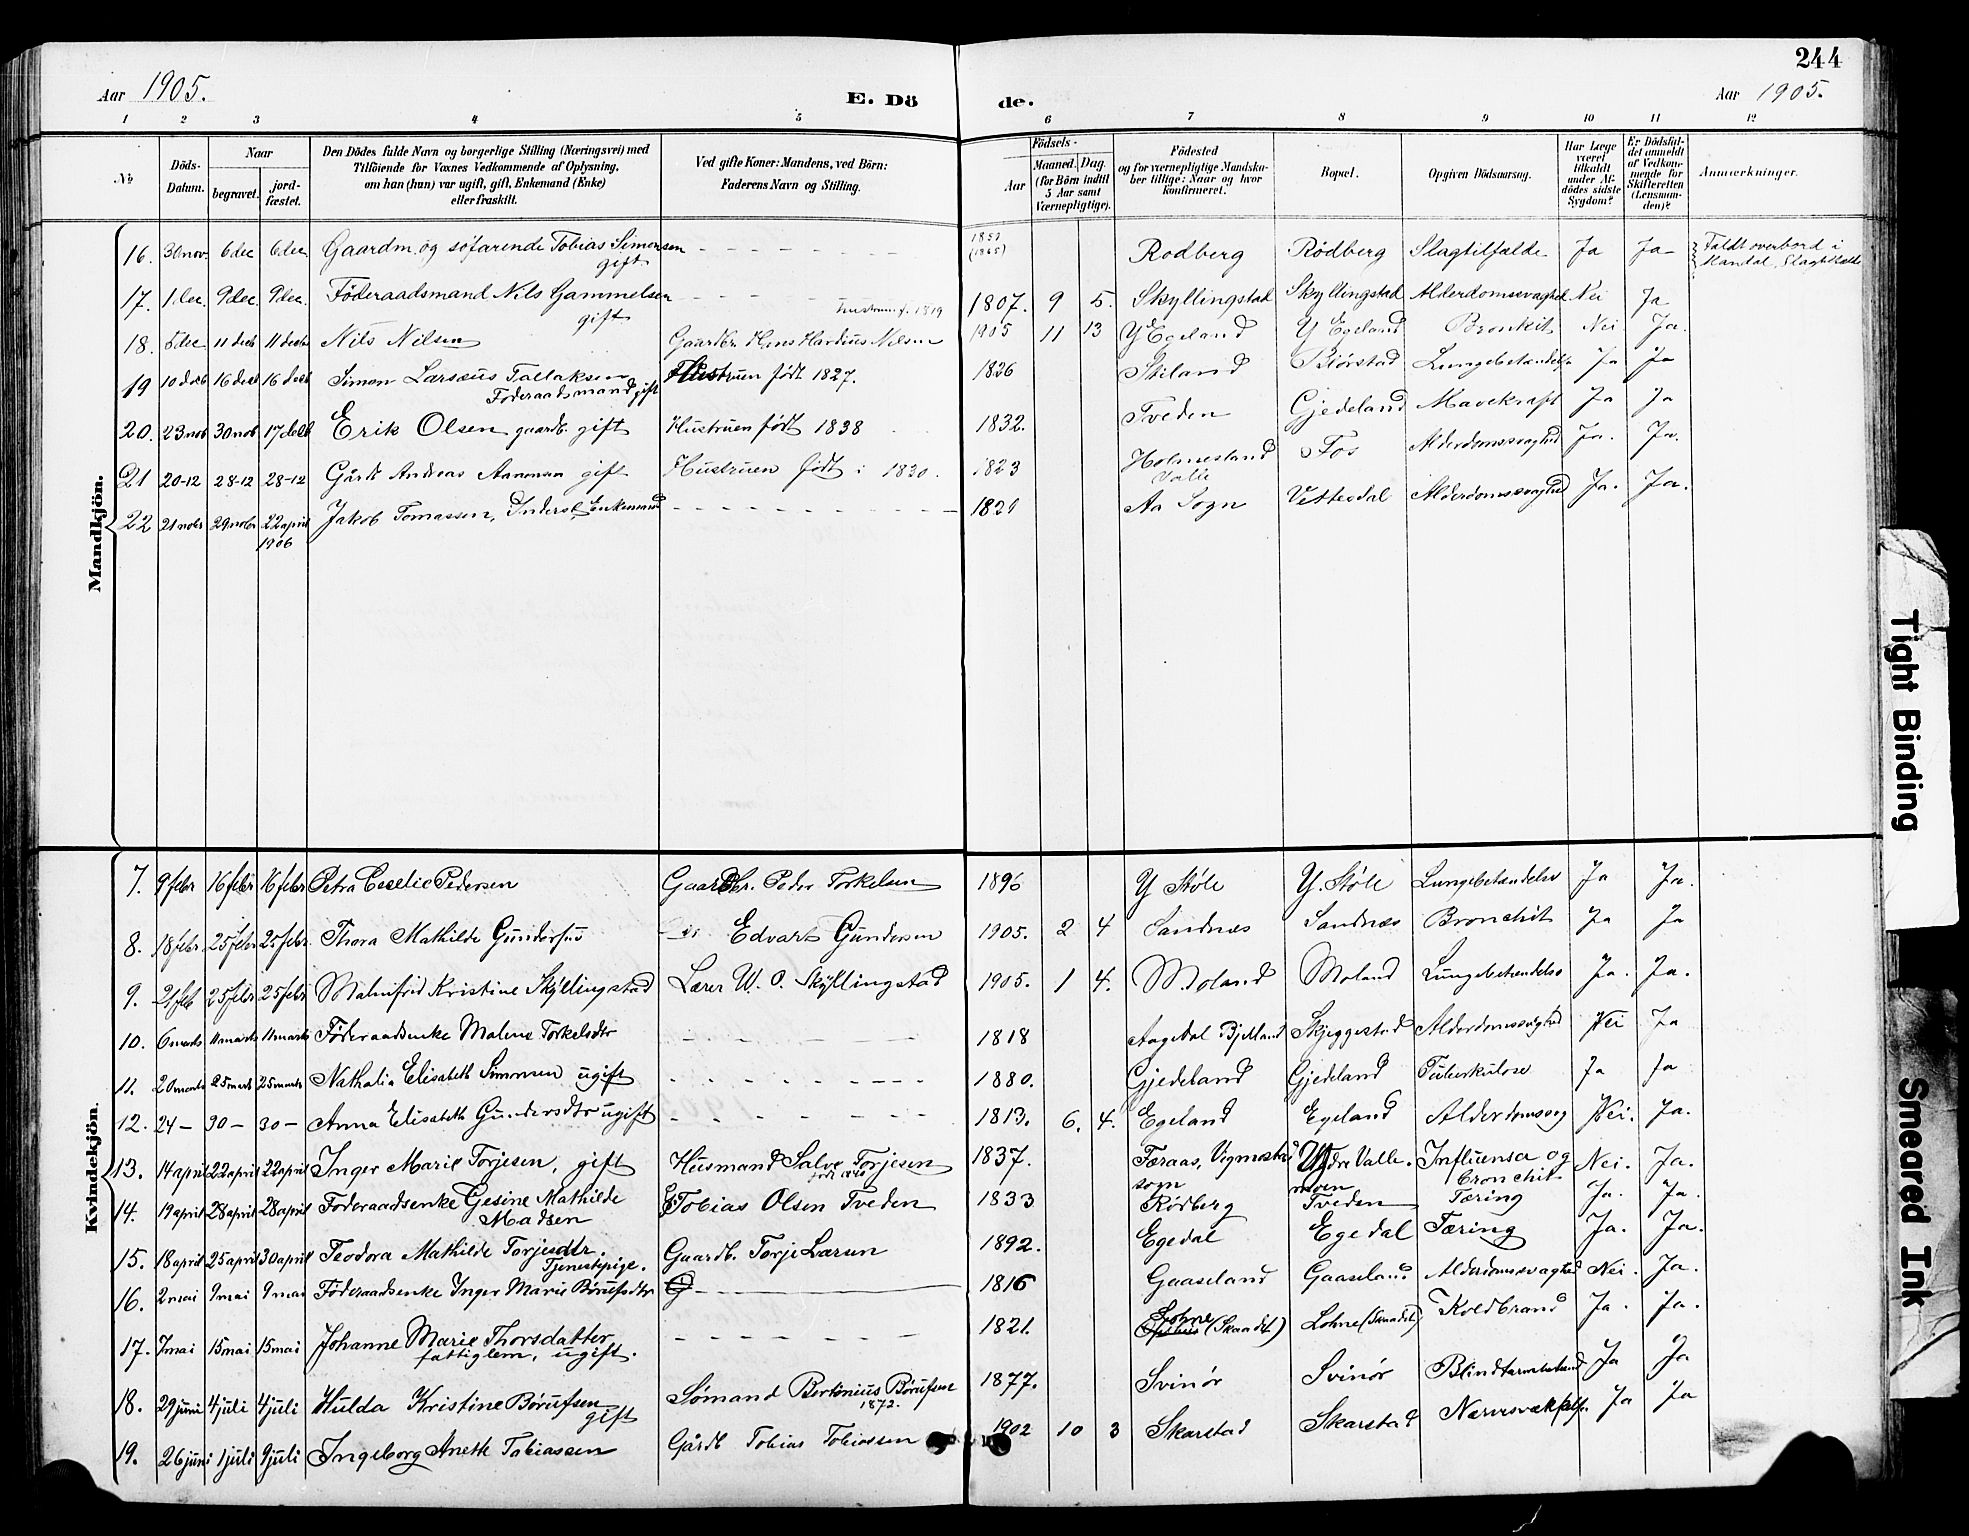 244
Aar 1905. E. Dö de. Aar 1905.
1 2 3 4 5 6 7 8 9 10 11 12
№ Döds-Datum. Naar begravet. jord-fæstet. Den Dödes fulde Navn og borgerlige Stilling (Næringsvei) med Tilföiende for Voxnes Vedkommende af Oplysning, om han (hun) var ugift, gift, Enkemand (Enke) eller fraskilt. Ved gifte Koner: Mandens, ved Börn: Faderens Navn og Stilling. Födsels- Aar Maaned. Dag. (for Börn indtil 5 Aar samt Værnepligtige). Födested og for værnepligtige Mandskaber tillige: Naar og hvor konfirmeret. Bopæl. Opgiven Dödsaarsag. Har Læge været tilkaldt under Afdödes sidste Sygdom? Er Dödsfaldet anmeldt af Vedkommende for Skifteretten (Lensmanden)? Anmærkninger.
Mandkjön.
16. 30 nov. 6 dec 6 dec Gaardm. og söfarende Tobias Simonsen gift - - - (1865) Rodberg Rödberg Slagtilfælde Ja Ja Faldt overbord i Mandal, Slagtilfælde
17. 1 dec 9 dec 9 dec. Föderaadsmand Nils Gammelsen gift - - - hustruen f. 1819 1807. 9 5. Skyllingstad Skyllingstad Alderdomssvaghed Nei Ja
18. 5 dec 11 decb 11 decb Nils Nilsen Gaardbr. Hans Hardius Nilsen 1905 11 13 Y Egeland Y Egeland Bronkit Nei Ja.
19 10 decb 16 decb 16 decb Simon Larsæus Tallaksen Föderaadsmand gift Hustruen født 1827. 1826 Skiland Biörstad Lungebetændelse Ja Ja
20. 23 nob 30 nob 17 decb Erik Olsen gaardb. gift Hustruen født 1838 1832. Tveden Gjedeland Mavekræft Ja Ja
21 20-12 28-12 28-12 Gårdb Andreas Aanonsen gift Hustruen født i 1830. 1823 Holmesland Valle Fos Alderdomssvaghed Ja. Ja.
22 21 nobr 29 nobr 22 april 1906 Jakob Tomassen, Inderst, Enkemand - - - 1821 Aa Sogn Vettedal Alderdomssvaghed Ja. Ja.
Kvindekjön.
7. 9 febr 16 febr 16 febr Petra Ceselie Pedersen Gaardbr. Peder Torkelsen 1896 Y Støle Y. Støle Lungebetændelse Ja Ja.
8. 18 febr 25 febr 25 febr. Thora Mathilde Gundersen Edvart Gundersen 1905. 2 4 Sandnæs Sandnæs Bronchit Ja Ja
9. 21 feb 25 febr 25 febr Malmfrid Kristine Skyllingstad Lærer W. O. Skyllingstad 1905. 1 4. Moland Moland Lungebetændelse Ja. Ja.
10. 6 marts 11 marts 11 marts Föderaadsenke Malene Torkelsdtr - - - 1818 Aagedal Bjelland Skjeggestad Alderdomssvaghed Nei Ja
11. 20 marts 25 marts 25 marts Nathalia Elisabeth Simonsen ugift - - - 1880. Gjedeland Gjedeland Tuberkulose Ja Ja
12. 24 - 30 - 30 - Anna Elisabeth Gundersdtr ugift - - - 1813. 6. 4. Egeland Egeland Alderdomsvag Nei. Ja.
13. 14 april 22 april 22 april Inger Marie Torjesen, gift Husmand Salve Torjesen 1837. Færaas, Vigmostad sogn Ydre Valle. moen Influensa og bronchit Nei. Ja.
14. 19 april 28 april 28 april Föderaadsenke Gesine Mathilde Madsen Tobias Olsen Tveden 1833 Rödberg Tveden Tæring Ja. Ja.
15. 18 april 25 april 30 april Teodora Mathilde Torjesdtr. Tjenestepige. Gaardb. Torje Larsen 1892. Egedal Egedal Tæring Ja. Ja.
16. 2 mai 9 mai 9 mai Föderaadsenke Inger Marie Børufsdtr 1816 Gaaseland Gaaseland Alderdomssvaghed Nei. Ja.
17. 7 mai 15 mai 15 mai Johanne Marie Thorsdatter fattiglem, ugift. - - - 1821. Lohne (Skaadet) Lohne (Skaadet) Koldbrand Ja. Ja.
18. 29 juni 4 juli 4 juli Hulda Kristine Børufsen gift Sømand Bertinius Børufsen 1872. 1877. Svinör Svinör Blindtarmbetænd Ja Ja
19. 26 juni 1 juli 9 juli Ingeborg Anette Tobiassen Gårdb Tobias Tobiassen 1902 10 3 Skarstad Skarstad Ja Ja
Tight Binding
Smeared Ink